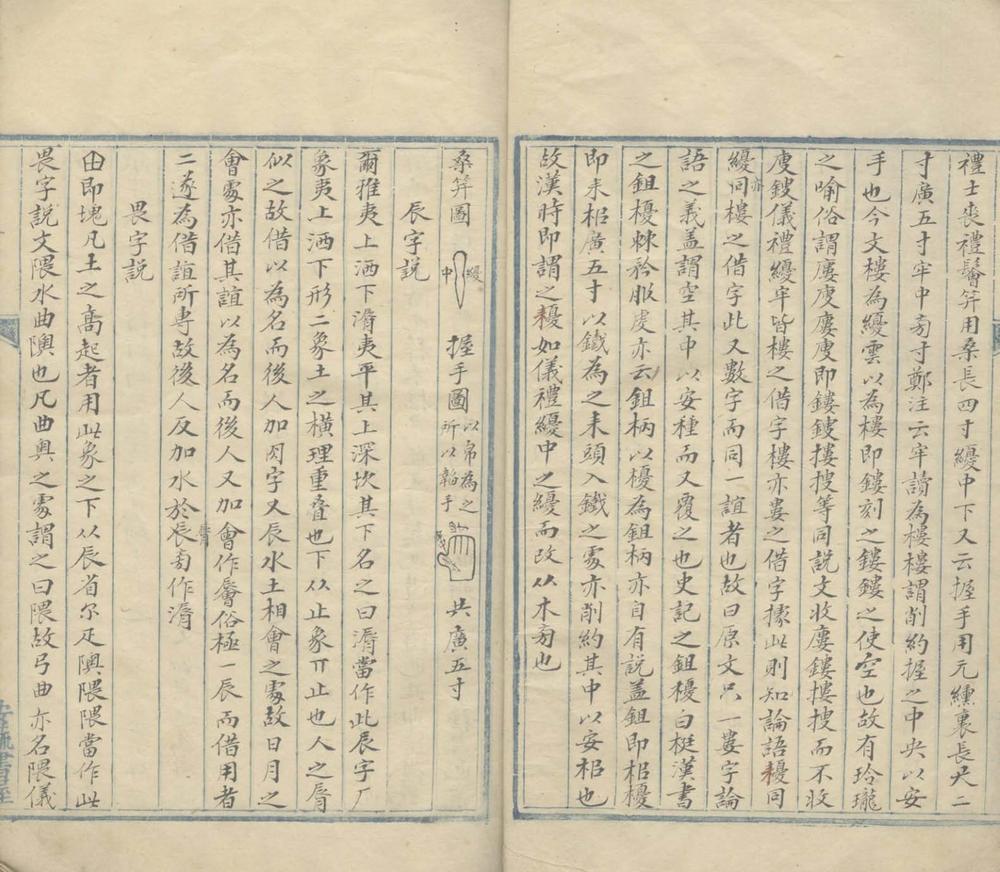 禮士喪禮鬠笄用桑長四寸纋中下又云握手用元纁裏長尺二
寸廣五寸牢中旁寸鄭注云牢讀為樓樓謂削約握之中央以安
手也今文樓為纋雲以為樓即鏤刻之鏤鏤之使空也故有玲瓏
之喻俗謂廔廋廔廋即鏤鎪摟搜等同說文收廔鏤摟搜而不收
廋鎪儀禮纋牢皆樓之借字樓亦婁之借字據此則知論語耰同
纋亦同樓之借字此又數字而同一誼者也故曰原文只一婁字論
語之義蓋謂空其中以安種而又覆之也史記之鉏櫌白梃漢書
之鉏櫌棘矜服虔亦云鉏柄以櫌為鉏柄亦自有說蓋鉏即枱櫌
即耒枱廣五寸以鐵為之耒頭入鐵之處亦削約其中以安枱也
故漢時即謂之耰如儀禮纋中之纋而改从木旁也
桑笄圖 纋中 握手圖 以帛為之所以韜手 共廣五寸
辰字說
爾雅夷上洒下漘夷平其上深坎其下名之曰漘當作此辰字厂
象夷上洒下形二象土之橫理重疊也下以止象丌止也人之脣
似之故借以為名而後人加肉字又辰水土相會之處故日月之
會處亦借其誼以為名而後人又加會作俗極一辰而借用者
二遂為借誼所專故後人反加水於脣旁作漘
畏字說
甶即塊凡土之高起者用此象之下从辰省尔疋隩隈隈當作此
畏字說文隈水曲隩也凡曲奧之處謂之曰隈故弓曲亦名隈儀